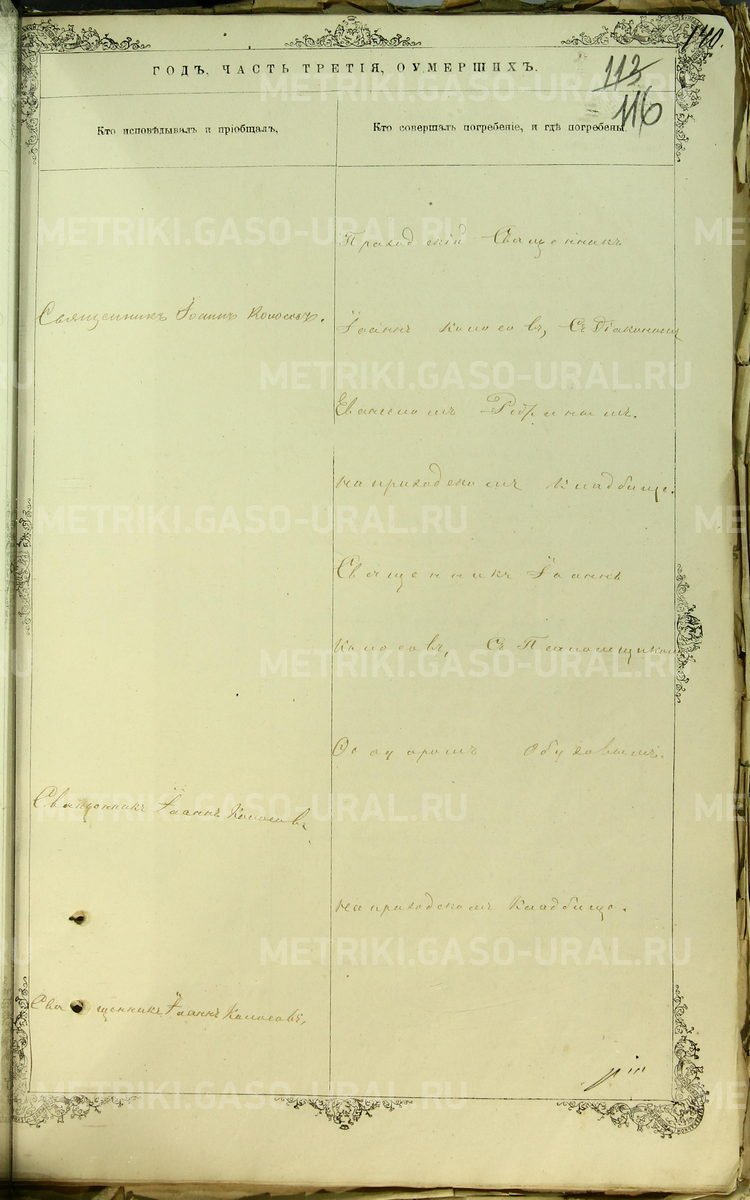 140.
ГОДЪ, ЧАСТЬ ТРЕТІЯ, ОУМЕРШИХЪ.
113
116
Кто исповѣдывалъ и пріобщалъ,
Кто совершалъ погребеніе, и гдѣ погребены.
Священникъ Іоаннъ Колосовъ.
Приходскій Священникъ
Іоаннъ Колосовъ, Съ Діакономъ
на приходскомъ Кладбище.
Священникъ Іоаннъ
Колосовъ, Съ Псаломщикомъ
Обуховымъ.
Священникъ Іоаннъ Колосовъ
на приходскомъ Кладбище.
Священникъ Іоаннъ Колосовъ,
METRIKI.GASO-URAL.RU